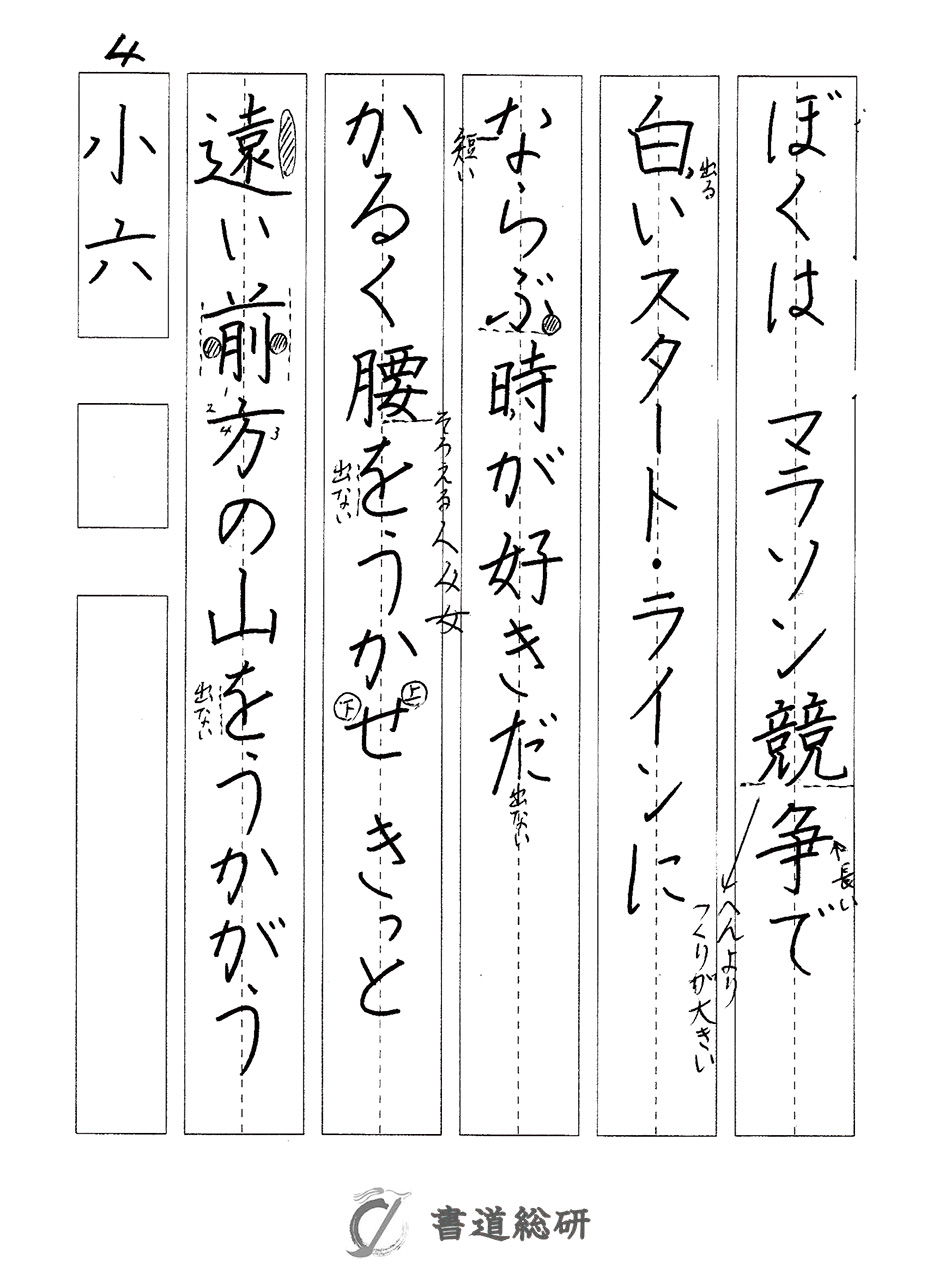 ぼくは　マラソン競争で
長い
へんより
つくりが大きい
白いスタート・ラインに
出る
ならぶ時が好きだ
短い
出ない
かるく腰をうかせ　きっと
そろえる人从女
出ない
上
下
遠い前方の山をうかがう
1
2
3
4
出ない
4
小六
書道総研